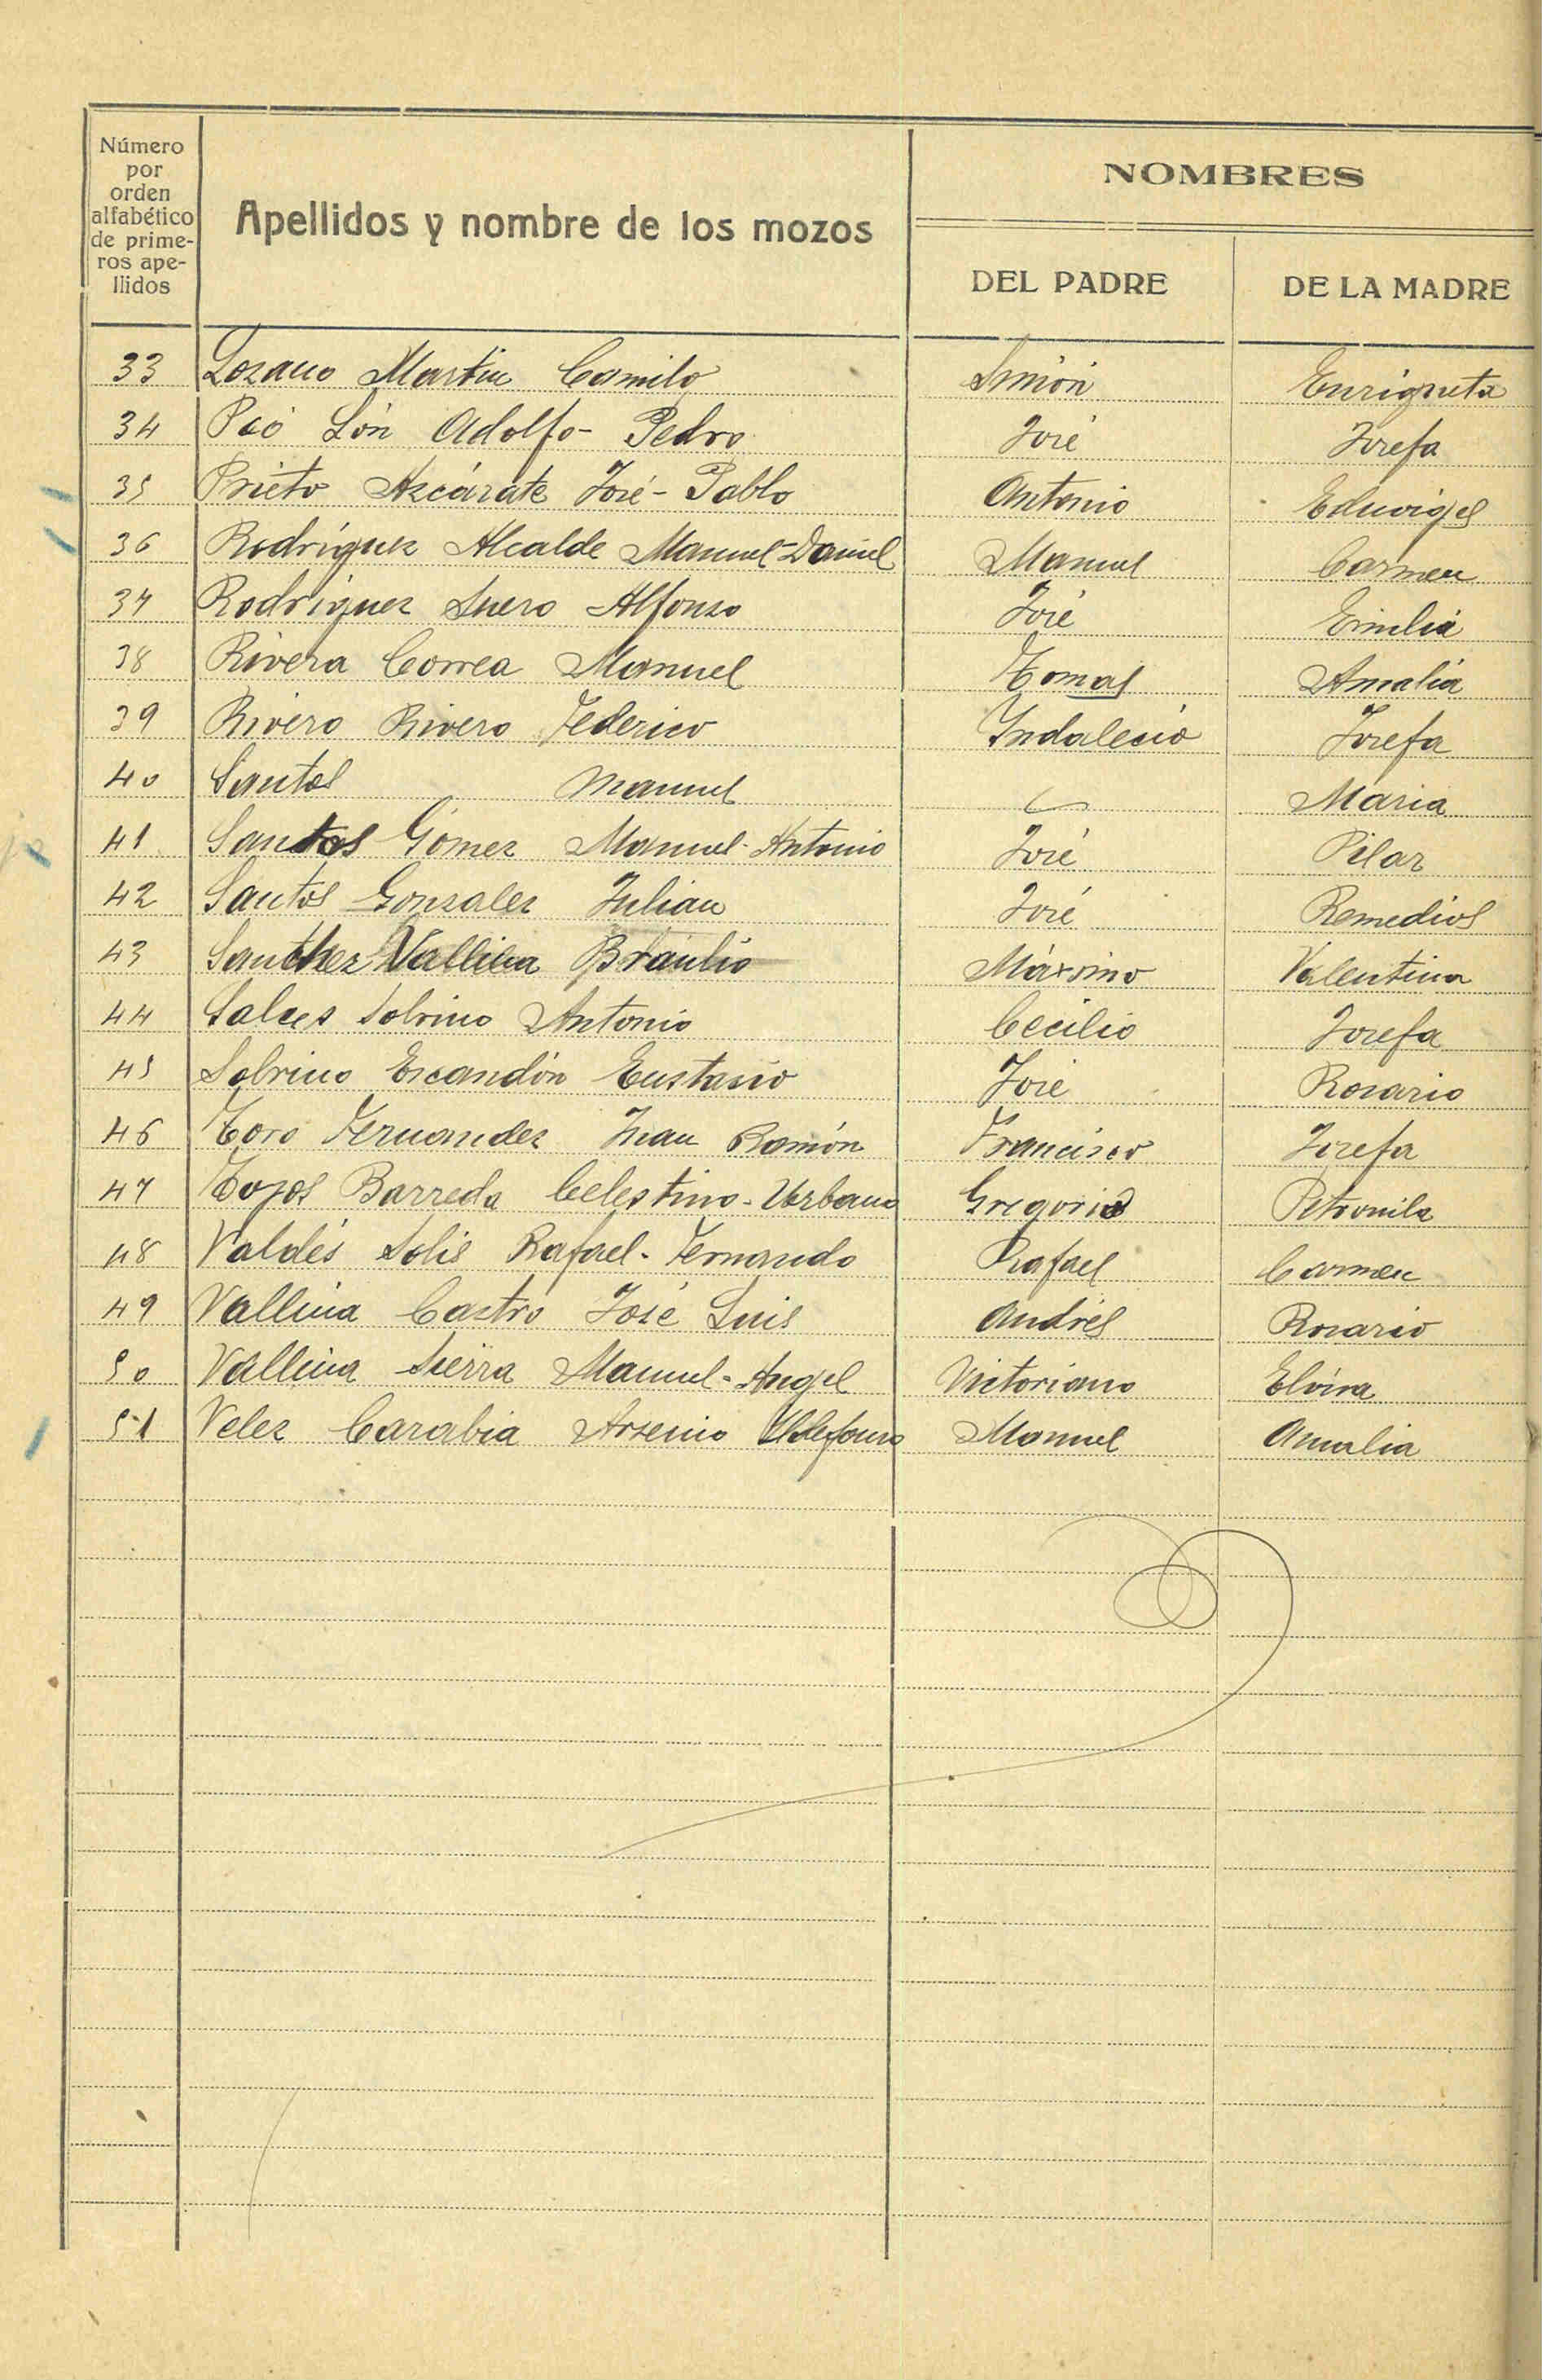 Número por orden alfabético de prime- ros ape- llidos
Apellidos y nombre de los mozos
NOMBRES
DEL PADRE
DE LA MADRE
33 Lozano Martin Camilo Simón Enriqueta
34 Peó Adolfo- Pedro José Josefa
35 Prieto Azcárate José- Pablo Antonio Eduviges
36 Rodríguez Alcalde Manuel-Daniel Manuel Carmen
37 Rodríguez Suero Alfonso José Emilia
38 Rivera Correa Manuel Tomas Amalia
39 Rivero Rivero Federico Indalecio Josefa
40 Santos Manuel Maria
41 Santos Gómez Manuel-Antonio José Pilar
42 Santos Gonzalez Julian José Remedios
43 Sanchez Vallina Braulio Máximo Valentina
44 Salces Sobrino Antonio Cecilio Josefa
45 Sobrino Escandón Eustasio José Rosario
46 Toro Fernandez Juan Ramón Francisco Josefa
47 Barreda Celestino-Urbano Gregorio Petronila
48 Valdés Solis Rafael-Fernando Rafael Carmen
49 Vallina Castro José Luis Andrés Rosario
50 Vallina Sierra Manuel-Angel Victoriano Elvira
51 Velez Carabia Arsenio Ildefonso Manuel Amalia